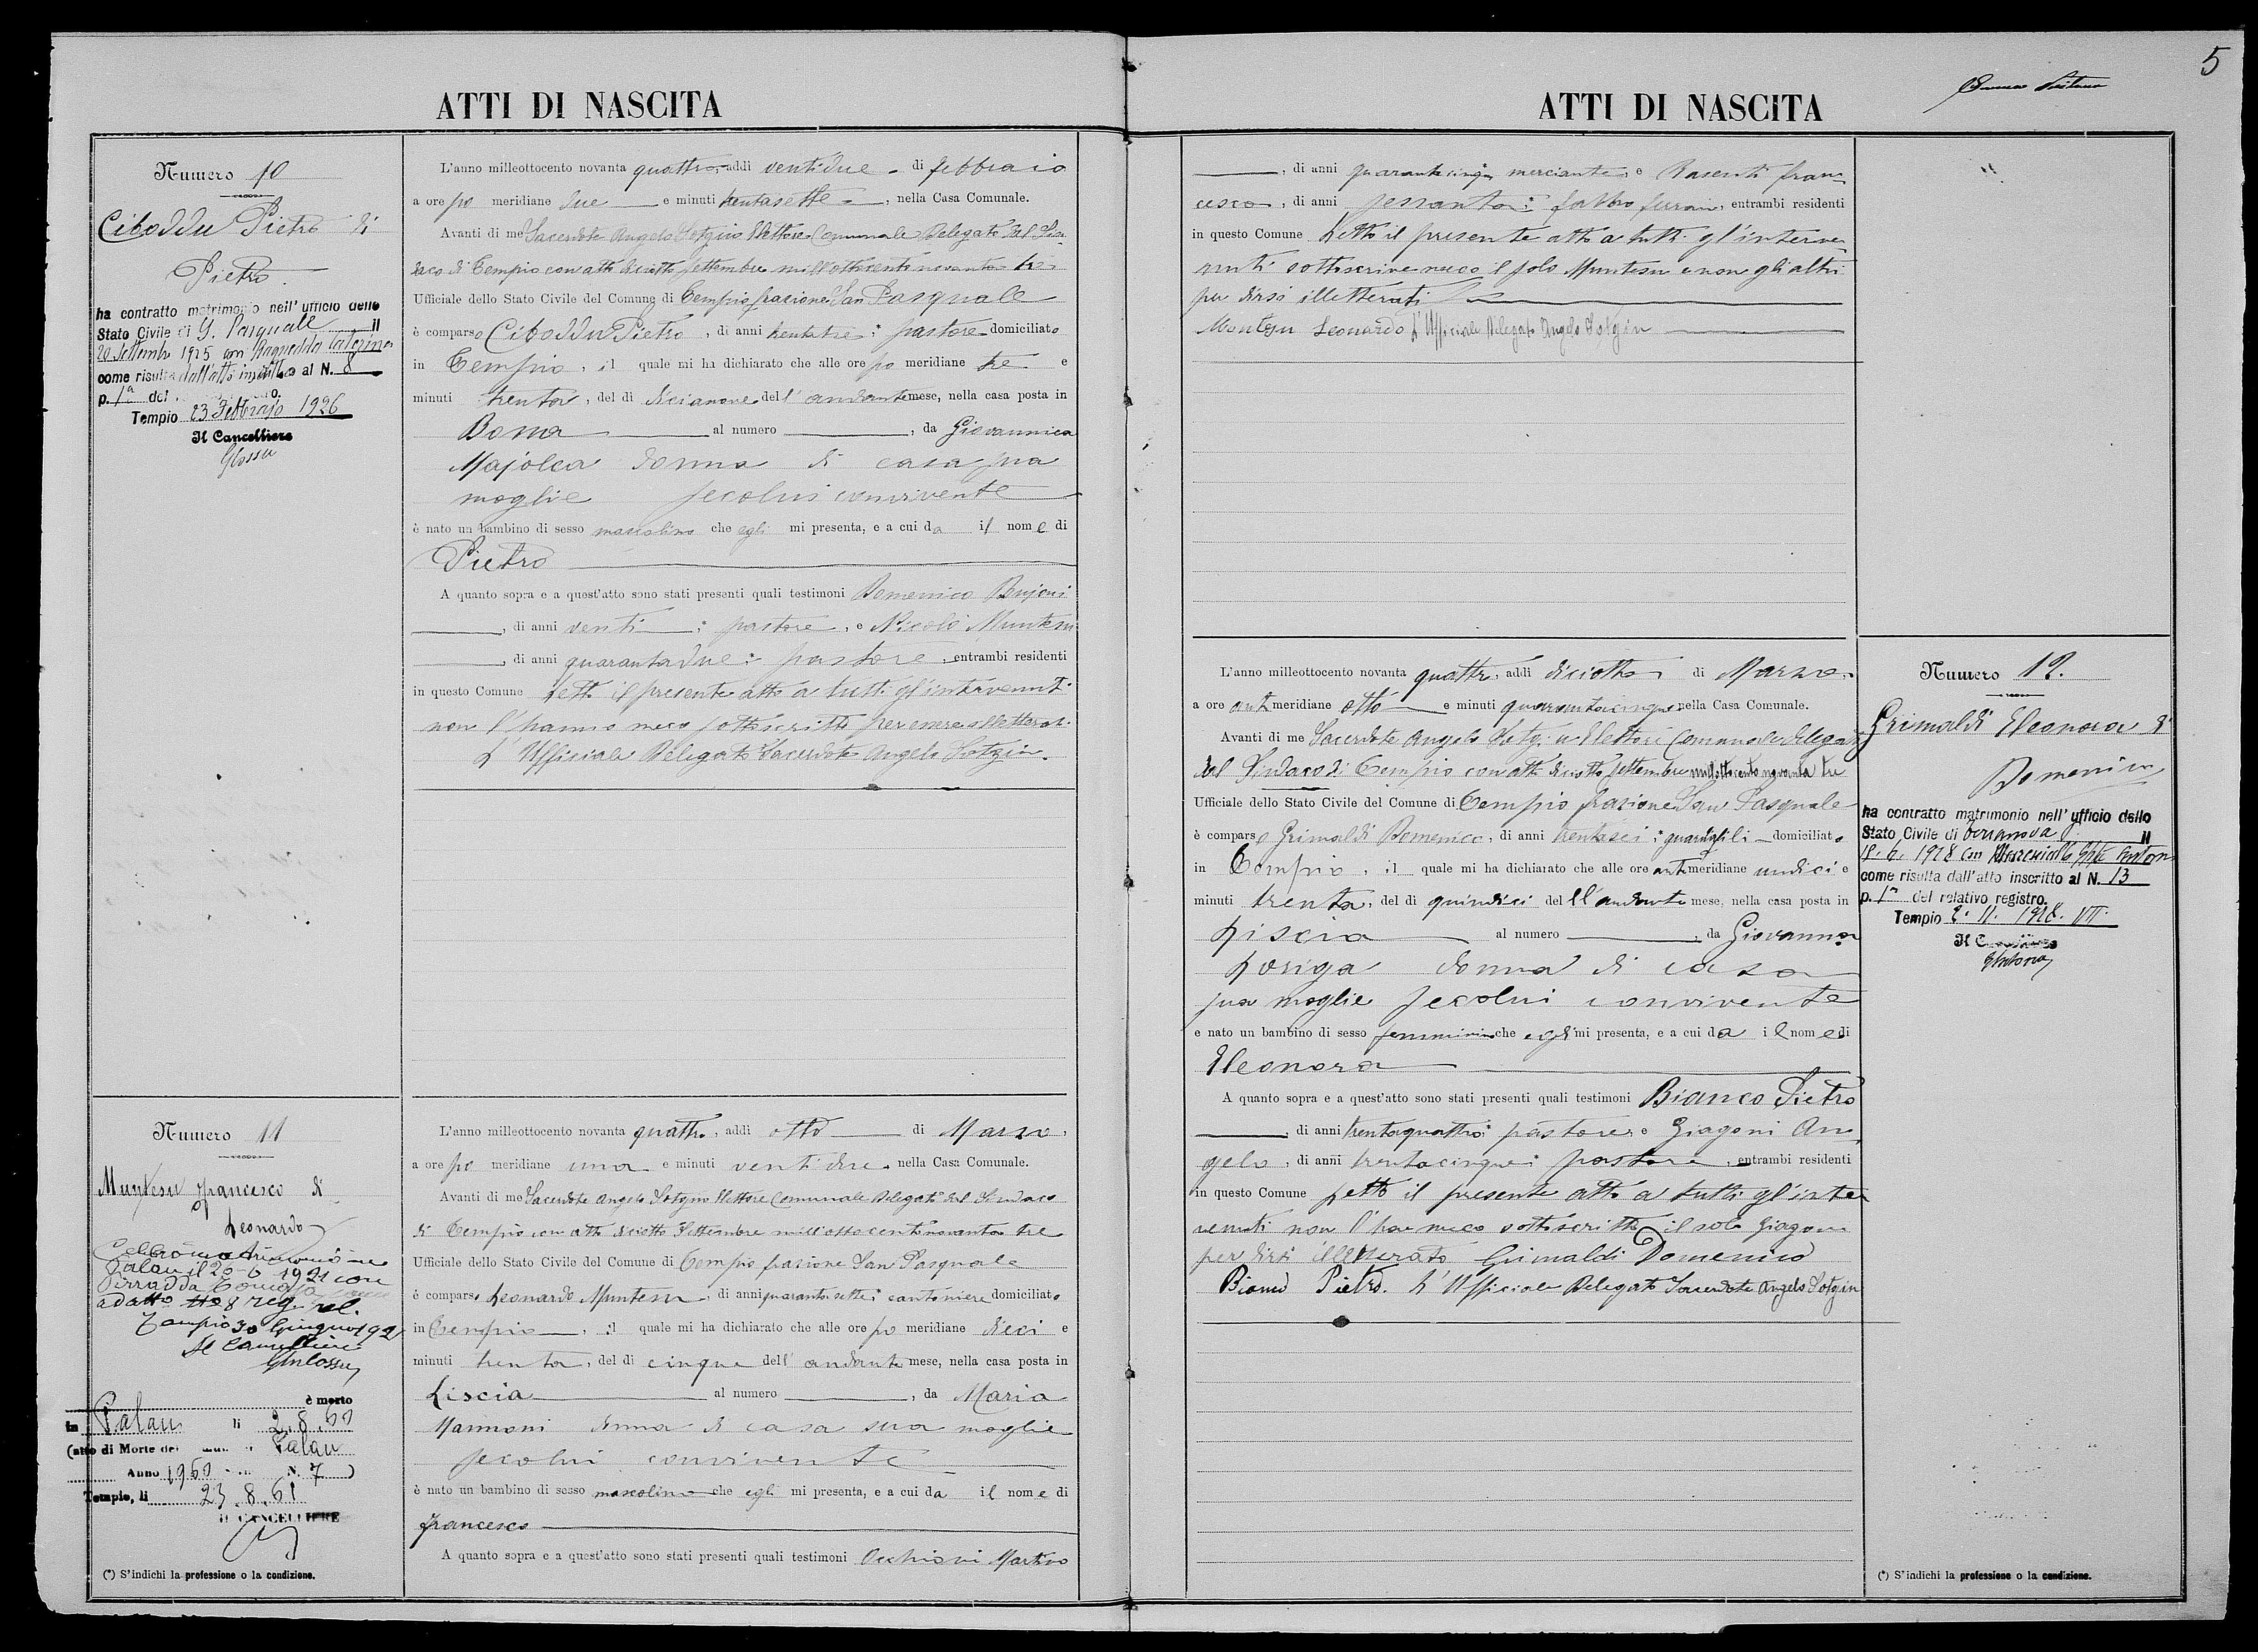 5
ATTI DI NASCITA
Numero 10
Ciboddu Pietro di
Pietro
ha contratto matrimonio nell'ufficio dello
Stato Civile di S. Pasquale il
20 Settembre 1925 con Ragnedda Caterina
come risulta dall'atto inscritto al N. 8
p. 1ª del
Tempio 23 Febbrajo 1926
Il Cancelliere
L'anno milleottocento novanta quattro, addì ventidue di febbraio
a ore po meridiane due e minuti trentasette, nella Casa Comunale.
Avanti di me Sacerdote Angelo Sotgiu Elettore Comunale Delegato dal Sin-
daco di Tempio con atto diciotto settembre mill'ottocento novanta tre
Ufficiale dello Stato Civile del Comune di Tempio frazione San Pasquale
è comparso Ciboddu Pietro, di anni trentatre; pastore domiciliato
in Tempio, il quale mi ha dichiarato che alle ore po meridiane tre e
minuti trenta, del dì dicianove dell'andante mese, nella casa posta in
al numero , da Giovannica
Majolca donna di casa sua
moglie secolui convivente
è nato un bambino di sesso mascolino che egli mi presenta, e a cui da il nome di
Pietro
A quanto sopra e a quest'atto sono stati presenti quali testimoni Domenico
, di anni venti; pastore, e Nicolò Muntesu
, di anni quarantadue; pastore, entrambi residenti
in questo Comune Letto il presente atto a tutti gl'intervenuti
non l'hanno meco sottoscritto per essere illetterati.
L'Ufficiale Delegato Sacerdote Angelo Sotgiu.
Numero 11
Muntesu Francesco di
Leonardo
Celebrò matrimonio in
Palau il 20-6 1921 con
Pirradda
ad atto 8 reg. rel.
Tempio 30 Giugno 192
Il Cancelliere
è morto
in Palau li 2.8.60
(atto di Morte del Palau
Anno 1960 N. 7)
Tempio, li 23.8.61
IL CANCELLIERE
(*) S'indichi la professione o la condizione.
L'anno milleottocento novanta quattro, addì otto di Marzo,
a ore po meridiane una e minuti ventidue, nella Casa Comunale.
Avanti di me Sacerdote Angelo Sotgiu Elettore Comunale Delegato dal Sindaco
di Tempio con atto diciotto Settembre mill'ottocentonovanta tre
Ufficiale dello Stato Civile del Comune di Tempio frazione San Pasquale
è comparso Leonardo Muntesu, di anni quarantasette; cantoniere domiciliato
in Tempio, il quale mi ha dichiarato che alle ore po meridiane dieci e
minuti trenta, del dì cinque dell'andante mese, nella casa posta in
Liscia al numero , da Maria
Mannoni donna di casa sua moglie
secolui convivente
è nato un bambino di sesso mascolino che egli mi presenta, e a cui da il nome di
Francesco
A quanto sopra e a quest'atto sono stati presenti quali testimoni Occhioni Martino
ATTI DI NASCITA
, di anni quarantacinque merciante, e Pasenti Fran-
cesco, di anni sessanta; fabbro ferraio, entrambi residenti
in questo Comune Letto il presente atto a tutti gl'interve-
nuti sottoscrive meco il solo Muntesu e non gli altri
per dirsi illetterati
Montesu Leonardo L'Ufficiale Delegato Angelo Sotgiu
L'anno milleottocento novanta quattro, addì diciotto di Marzo,
a ore anti meridiane otto e minuti quarantacinque, nella Casa Comunale.
Avanti di me Sacerdote Angelo Sotgiu Elettore Comunale delegato
dal Sindaco di Tempio con atto diciotto settembre millottocentonovanta tre
Ufficiale dello Stato Civile del Comune di Tempio frazione San Pasquale
è comparso Grimaldi Domenico, di anni trentasei; guardafili domiciliato
in Tempio, il quale mi ha dichiarato che alle ore anti meridiane undici e
minuti trenta, del dì quindici dell'andante mese, nella casa posta in
Liscia al numero , da Giovanna
Loriga donna di casa
sua moglie secolui convivente
è nato un bambino di sesso femminino che egli mi presenta, e a cui da il nome di
Eleonora
A quanto sopra e a quest'atto sono stati presenti quali testimoni Bianco Pietro
, di anni trentaquattro; pastore e Giagoni An-
gelo, di anni trentacinque; pastore, entrambi residenti
in questo Comune Letto il presente atto a tutti gl'inter
venuti non l'ha meco sottoscritto il solo Giagoni
per dirsi illetterato Grimaldi Domenico
Bianco Pietro. L'Ufficiale Delegato Sacerdote Angelo Sotgiu
Numero 12.
Grimaldi Eleonora di
Domenico
ha contratto matrimonio nell'ufficio dello
Stato Civile di Terranova il
18. 6. 1928 con
come risulta dall'atto inscritto al N. 13
p. 1ª del relativo registro.
Tempio 2. 11. 1928. VII.
(*) S'indichi la professione o la condizione.